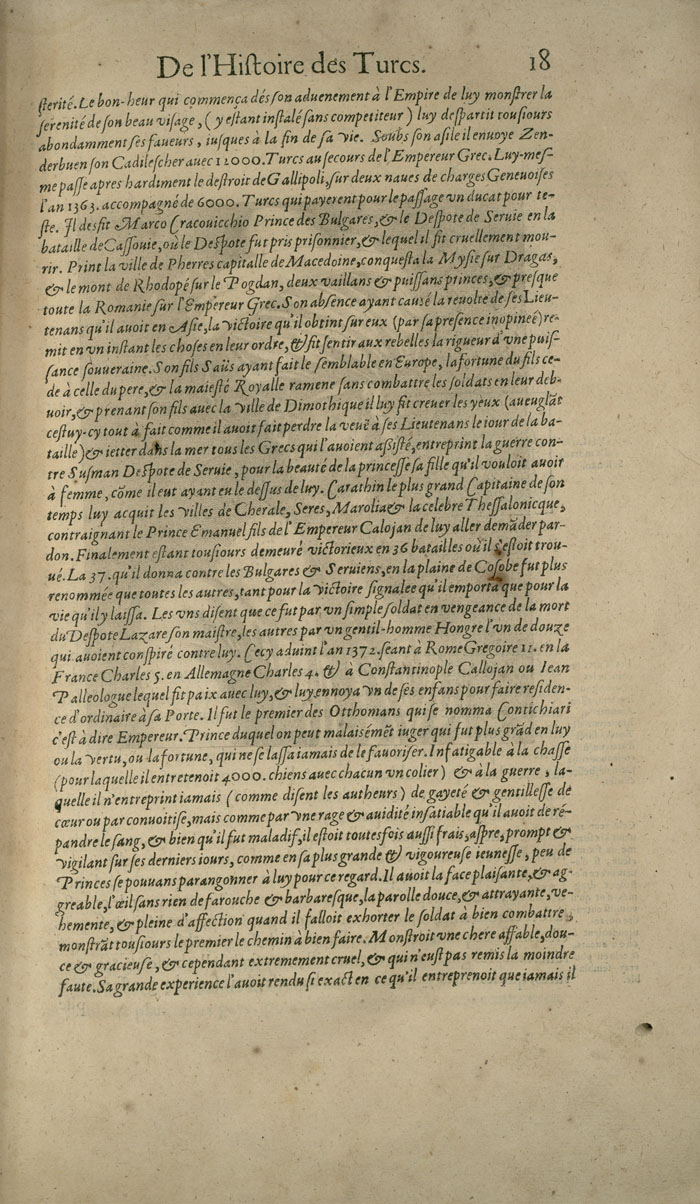 De l'Hiſtoire des Turcs. 18
ſterité. Le bon-heur qui commença dés son aduenement à l'Empire de luy monſtrer la
ſerenité de son beau viſage, (y eſtant inſtalé sans competiteur) luy deſpartit touſiours
abondamment ses faueurs, iuſques à la fin de ſa vie. Soubs son aſile il enuoye Zen-
derbuen son Cadileſcher auec 12000. Turcs au secours de l'Empereur Grec. Luy-meſ-
me paſſe apres hardiment le deſtroit de Gallipoli, ſur deux naues de charges Geneuoiſes
l'an 1363. accompagné de 6000. Turcs qui payerent pour le paſſage vn ducat pour te-
ſte. Il desfit Marco Cracouicchio Prince des Bulgares, & le Deſpote de Seruie en la
bataille de Caſſouie, où le Deſpote fut pris priſonnier, & lequel il fit cruellement mou-
rir. Print la ville de Pherres capitalle de Macedoine, conqueſta la Myſie ſur Dragas,
& le mont de Rhodopé ſur le Pogdan, deux vaillans & puiſſans princes, & preſque
toute la Romanie ſur l'Empereur Grec. Son abſence ayant causé la reuolte de ſes Lieu-
tenans qu'il auoit en Aſie, la victoire qu'il obtint ſur eux (par ſa preſence inopineé) re-
mit en vn inſtant les choſes en leur ordre, & fit ſentir aux rebelles la rigueur d'vne puiſ-
ſance ſouueraine. Son fils Saüs ayant fait le ſemblable en Europe, la fortune du fils ce-
de à celle du pere, & la maieſté Royalle ramene sans combattre les soldats en leur deb-
uoir, & prenant son fils auec la ville de Dimothique il luy fit creuer les yeux (aueuglãt
ceſtuy-cy tout à fait comme il auoit fait perdre la veuë à ſes Lieutenans le iour de la ba-
taille) & ietter dans la mer tous les Grecs qui l'auoient aſſiſté, entreprint la guerre con-
tre Suſman Deſpote de Seruie, pour la beauté de la princeſſe ſa fille qu'il vouloit auoir
à femme, cõme il eut ayant eu le deſſus de luy. Carathin le plus grand Capitaine de son
temps luy acquit les villes de Cherale, Seres, Marolia & la celebre Theſſalonicque,
contraignant le Prince Emanuel fils de l'Empereur Calojan de luy aller demãder par-
don. Finalement eſtant touſiours demeuré victorieux en 36 batailles où il s'eſtoit trou-
ué. La 37. qu'il donna contre les Bulgares & Seruiens, en la plaine de Coſobe fut plus
renommée que toutes les autres, tant pour la victoire ſignalee qu'il emporta que pour la
vie qu'il y laiſſa. Les vns diſent que ce fut par vn ſimple ſoldat en vengeance de la mort
du Deſpote Lazare son maiſtre, les autres par vn gentil-homme Hongre l'vn de douze
qui auoient conſpiré contre luy. Cecy aduint l'an 1372. ſeant à Rome Gregoire 11. en la
France Charles 5. en Allemagne Charles 4. & à Conſtantinople Callojan ou Iean
Palleologue lequel fit paix auec luy, & luy ennoya vn de ſes enfans pour faire reſiden-
ce d'ordinaire à ſa Porte. Il fut le premier des Otthomans qui ſe nomma Contichiari
c'eſt à dire Empereur. Prince duquel on peut malaisémẽt iuger qui fut plus grãd en luy
ou la vertu, ou la fortune, qui ne ſe laſſa iamais de le fauoriſer. Infatigable à la chaſſe
(pour laquelle il entretenoit 4000. chiens auec chacun vn colier) & à la guerre, la-
quelle il n'entreprint iamais (comme diſent les autheurs) de gayeté & gentilleſſe de
cœur ou par conuoitiſe, mais comme par vne rage & auidité inſatiable qu'il auoit de ré-
pandre le ſang, & bien qu'il fut maladif, il eſtoit toutesfois auſſi frais, aſpre, prompt &
vigilant ſur ſes derniers iours, comme en ſa plus grande & vigoureuſe ieuneſſe, peu de
Princes ſe pouuans parangonner à luy pour ce regard. Il auoit la face plaiſante, & ag-
greable, l'œil ſans rien de farouche & barbareſque, la parolle douce, & attrayante, ve-
hemente, & pleine d'affection quand il falloit exhorter le ſoldat à bien combattre,
monſtrãt touſiours le premier le chemin à bien faire. Monſtroit vne chere affable, dou-
ce & gracieuſe, & cependant extremement cruel, & qui n'euſt pas remis la moindre
faute. Sa grande experience l'auoit rendu ſi exact en ce qu'il entreprenoit que iamais il